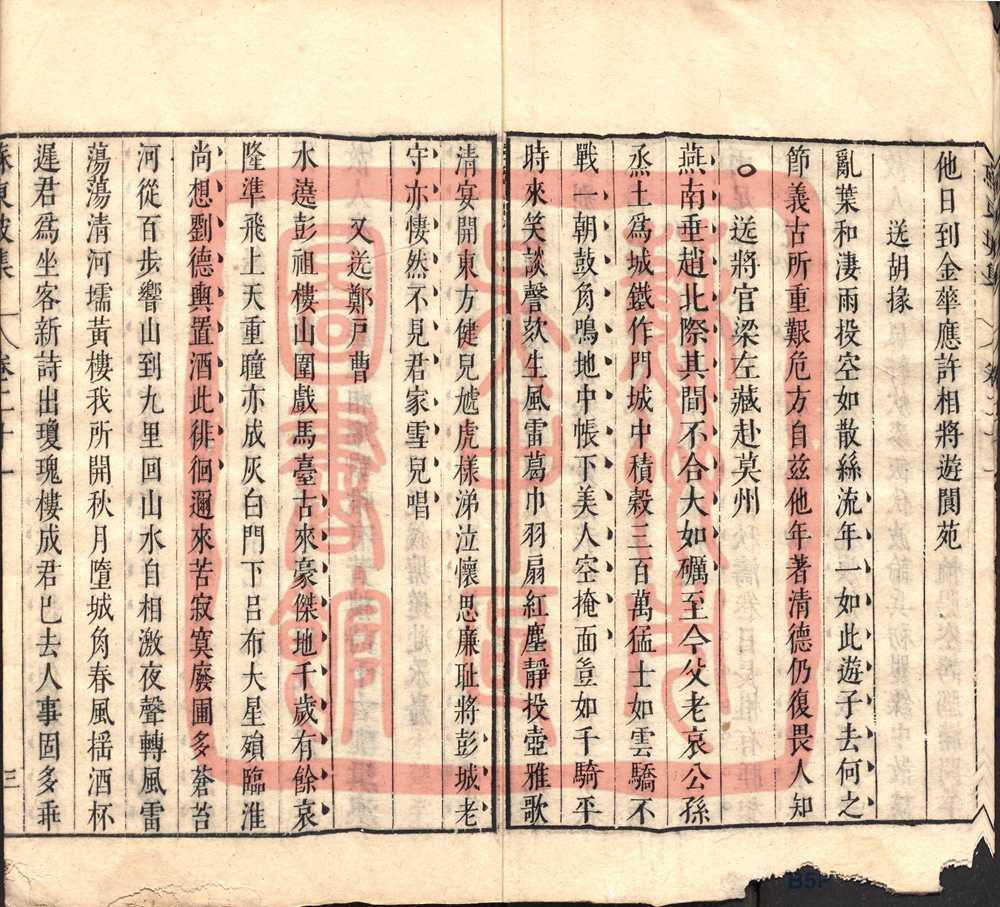 他日到金華應許相將遊閬苑
送胡掾
亂葉和淒雨投空如散絲流年一如此遊子去何之
節義古所重艱危方自兹他年著清德仍復畏人知
送將官梁左藏赴莫州
燕南垂趙北際其間不合大如礪至今父老哀公孫
烝土爲城鐵作門城中積榖三百萬猛士如雲驕不
戰一朝鼓角鳴地中帳下美人空掩面豈如千騎平
時來笑談謦欬生風雷葛巾羽扇紅塵靜投壺雅歌
清宴開東方健兒虓虎樣涕泣懷思廉耻將彭城老
守亦悽然不見君家雪兒唱
又送鄭戸曹
水遶彭祖樓山圍戲馬臺古來豪傑地千歲有餘哀
隆準飛上天重瞳亦成灰白門下呂布大星殞臨淮
尚想劉德輿置酒此徘徊邇來苦寂寞廢圃多蒼苔
河從百步響山到九里回山水自相激夜聲轉風雷
蕩蕩清河壖黃樓我所開秋月墮城角春風揺酒杯
遲君爲坐客新詩出瓊瑰樓成君已去人事固多乖
蘇東坡集
卷二十一
三